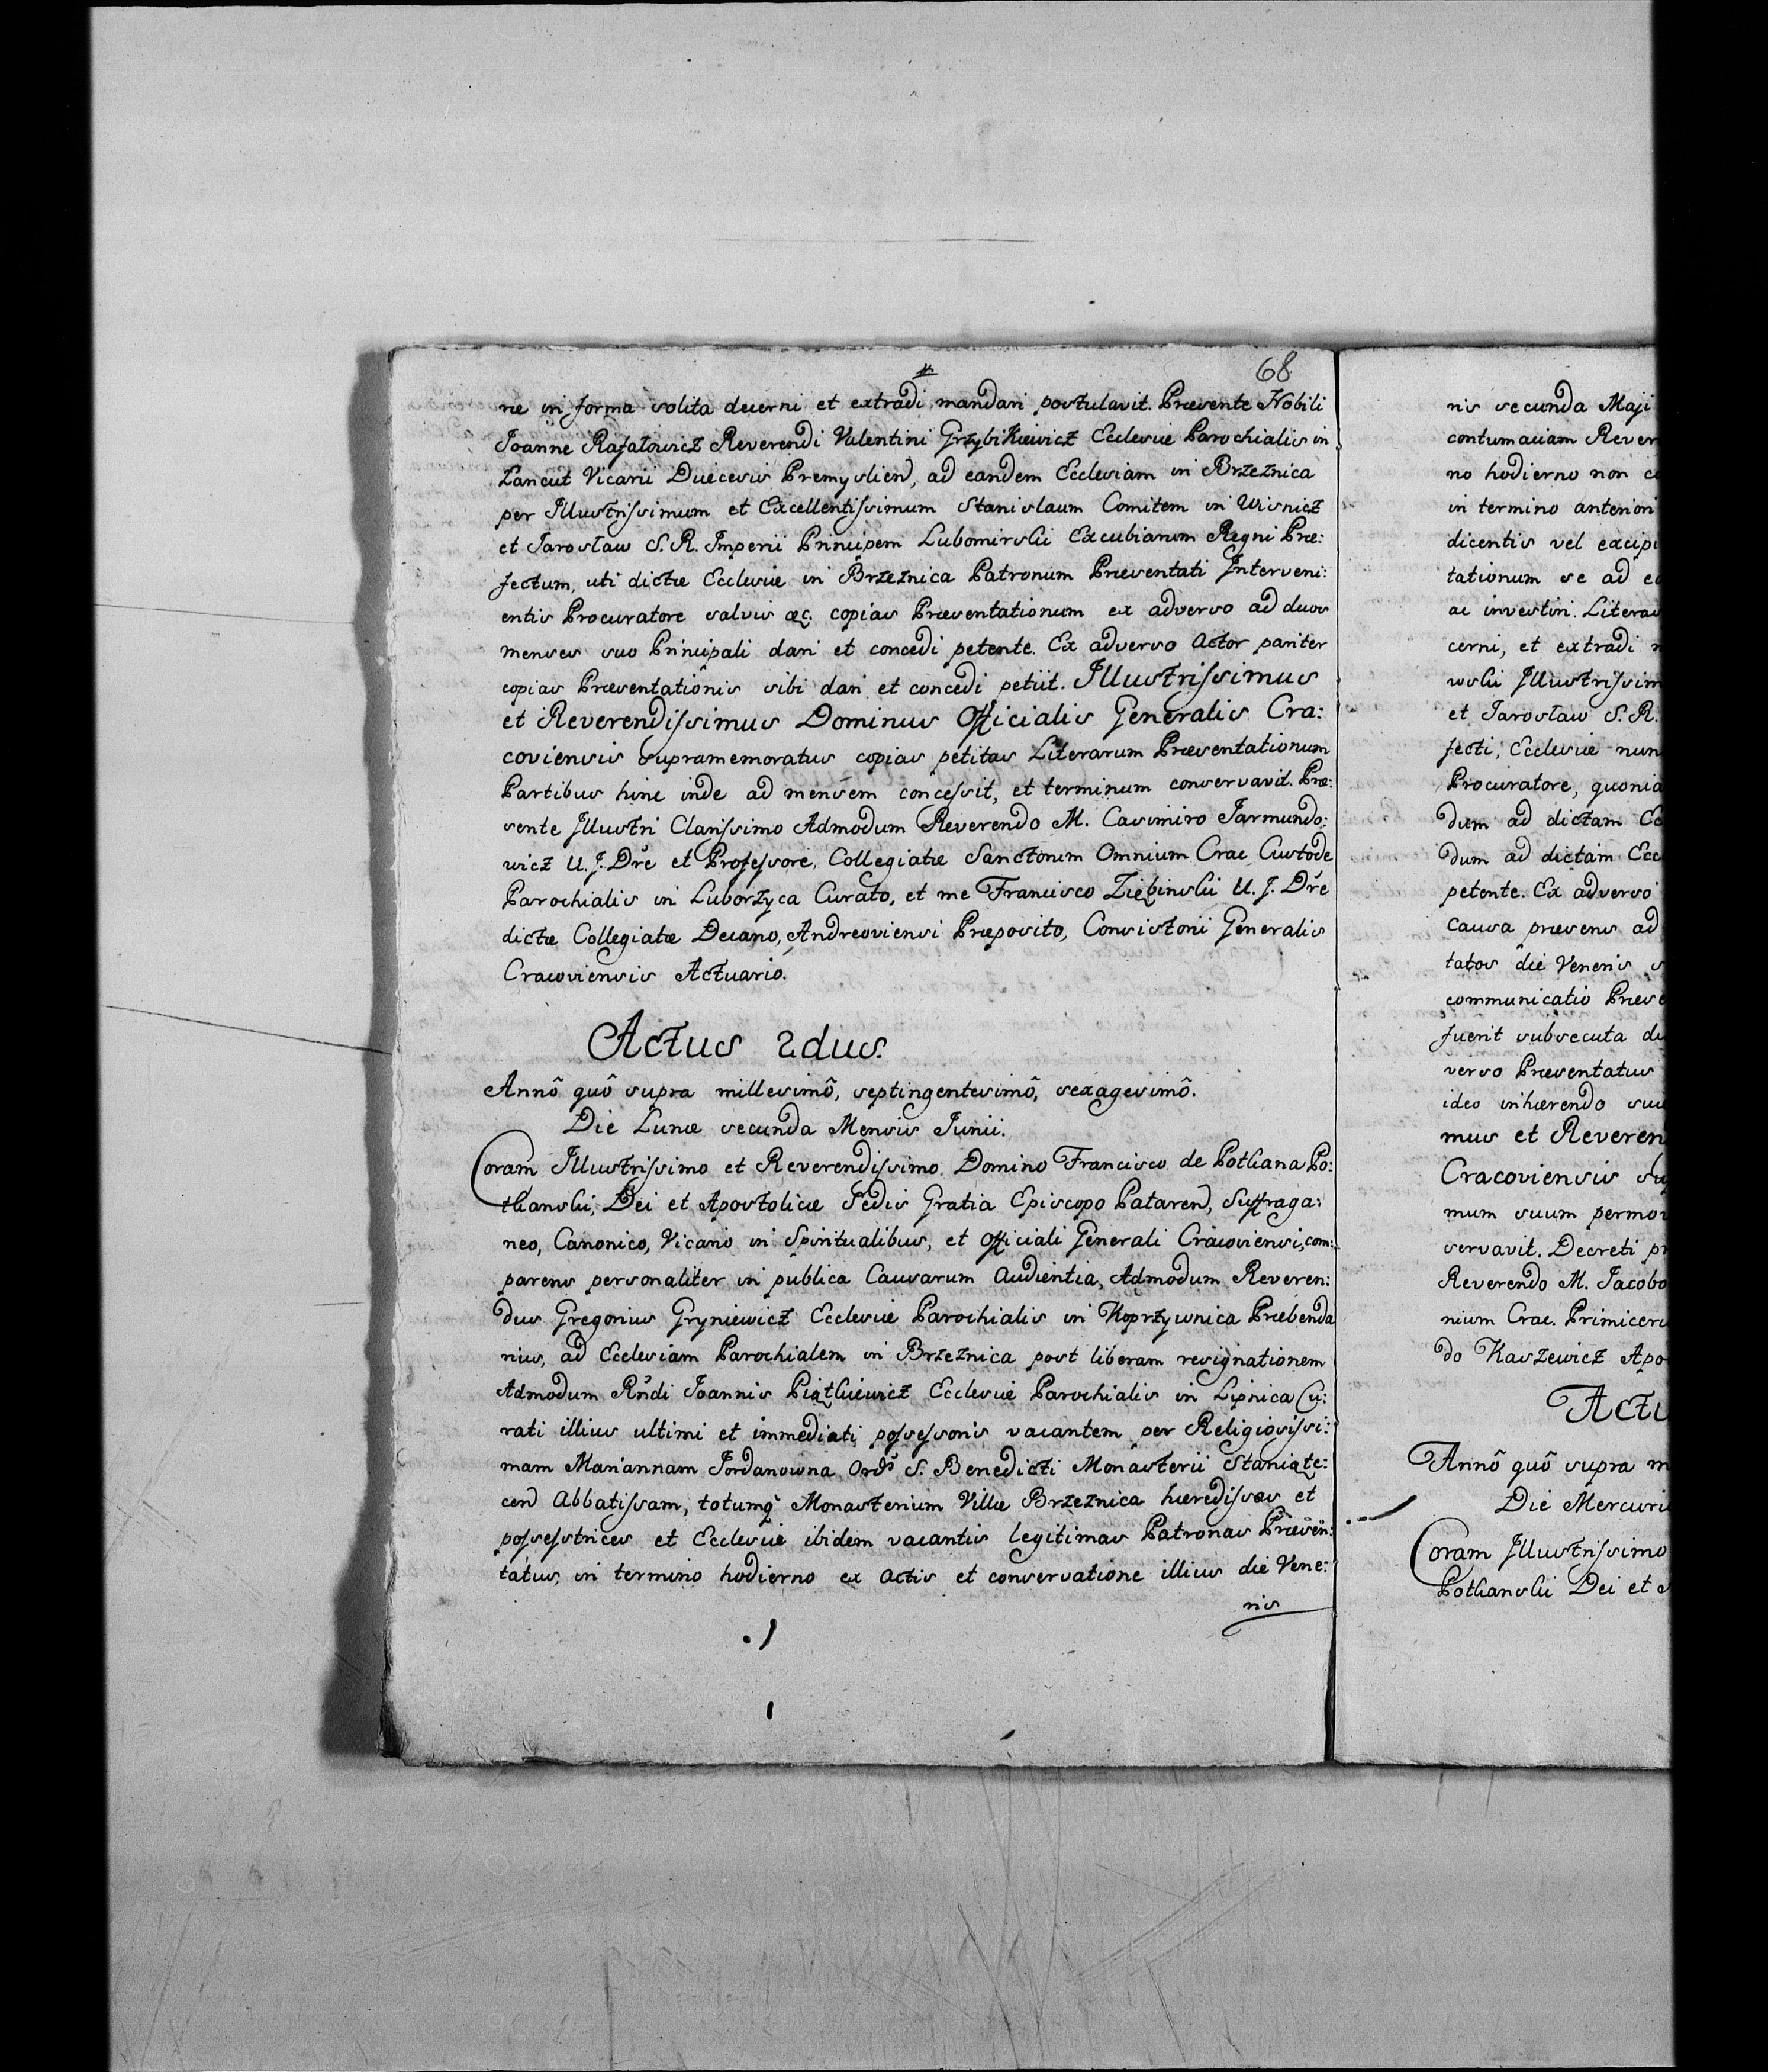 68
ne in forma solita decerni et extradi mandari postulavit. Præsente Nobili
Joanne Rafałowicz Reverendi Valentini Grzybikiewicz Ecclesiæ Parochialis in
Łancut Vicarii Diæcesis Premyslien, ad eandem Ecclesiam in Brzeznica
per Illustrissimum et Excellentissimum Stanislaum Comitem in Wisnicz
et Jarosław S. R. Imperii Principem Lubomirski Excubiarum Regni Præ:
fectum, uti dictæ Ecclesiæ in Brzeznica Patronum Præsentati Interveni:
entis Procuratore salvis &c. copias Præsentationum ex adverso ad duos
menses suo Principali dari et concedi petente. Ex adverso Actor pariter
copias Præsentationis sibi dari et concedi petiit. Illustrissimus
et Reverendissimus Dominus Officialis Generalis Cra:
coviensis supramemoratus copias petitas Literarum Præsentationum
Partibus hinc inde ad mensem concessit, et terminum conservavit. Præ:
sente Illustri Clarissimo Admodum Reverendo M. Casimiro Jarmundo:
wicz U. J. Dre et Professore, Collegiatæ Sanctorum Omnium Crac Custode
Parochialis in Luborzyca Curato, et me Francisco Ziębinski U. J. Dre
dictæ Collegiatæ Decano, Andreoviensi Præposito, Consistorii Generalis
Cracoviensis Actuario.
Actus 2dus.
Annô quô supra millesimô, septingentesimô, sexagesimô.
Die Lunæ secunda Mensis Junii.
Coram Illustrissimo et Reverendissimo Domino Francisco de Potkana Po:
tkanski, Dei et Apostolicæ Sedis Gratia Episcopo Pataren, Suffraga:
neo, Canonico, Vicario in Spiritualibus, et Officiali Generali Cracoviensi, com:
parens personaliter in publica Causarum Audientia, Admodum Reveren:
dus Gregorius Gryniewicz Ecclesiæ Parochialis in Koprzywnica Præbenda
rius, ad Ecclesiam Parochialem in Brzeznica post liberam resignationem
Admodum Rndi Joannis Piątkiewicz Ecclesiæ Parochialis in Lipnica Cu:
rati illius ultimi et immediati possessoris vacantem per Religiosissi:
mam Mariannam Jordanowna Ords S. Benedicti Monasterii Staniąte:
cen Abbatissam, totumq Monasterium Villæ Brzeznica hæredissas et
possestrices et Ecclesiæ ibidem vacantis legitimas Patronas Præsen:
tatus, in termino hodierno ex Actis et conservatione illius die Vene:
ris
nis secunda Maji
contumaciam Rever
no hodierno non c
in termino anteriori
dicentis vel excipi
tationum se ad e
ac investiri. Literas
cerni, et extradi
wski Illustrissim
et Jarosław S. R.
fecti, Ecclesiæ nun
Procuratore, quonia
dum ad dictam Ec
dum ad dictam Ecc
petente. Ex adverso
causa præsens ad
tatos die Veneris s
communicatio Præse
fuerit subsecuta di
verso Præsentatus
ideo inhærendo su
mus et Reveren
Cracoviensis su
mum suum permo
servavit. Decreti pr
Reverendo M. Jacobo
nium Crac. Primiceri
do Kaszewicz Apo
Actu
Annô quô supra m
Die Mercuri
Coram Illustrissimo
Potkanski Dei et